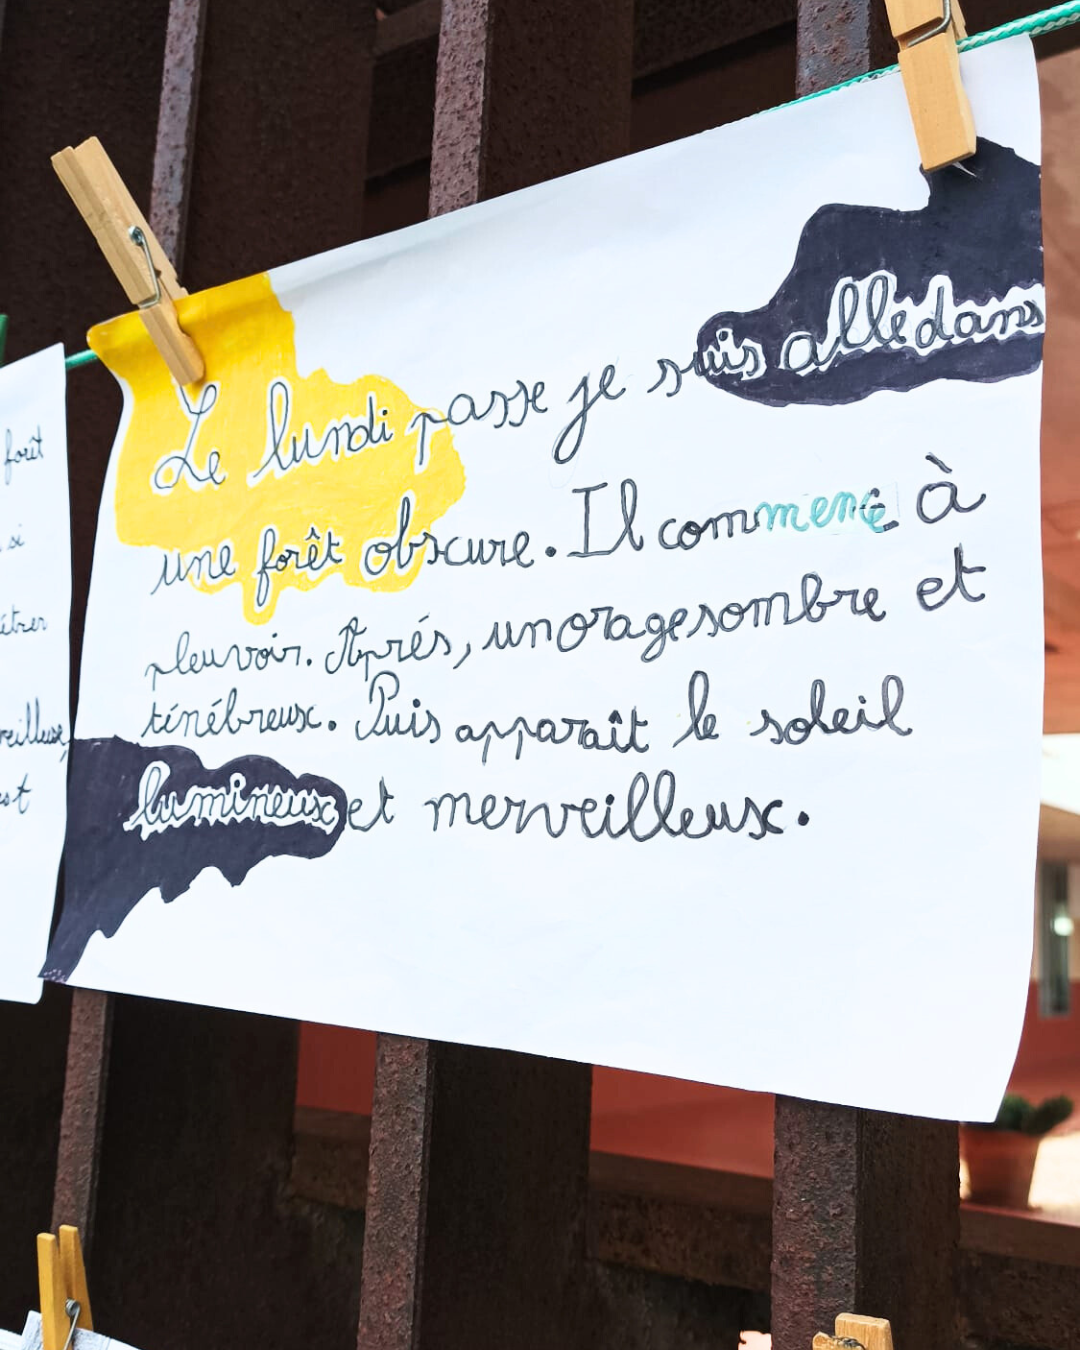 Le lundi passe je suis allé dans
une forêt obscure. Il commence à
pleuvoir. Aprés, un orage sombre et
ténébreux. Puis apparaît le soleil
lumineux et merveilleux.
forêt
si